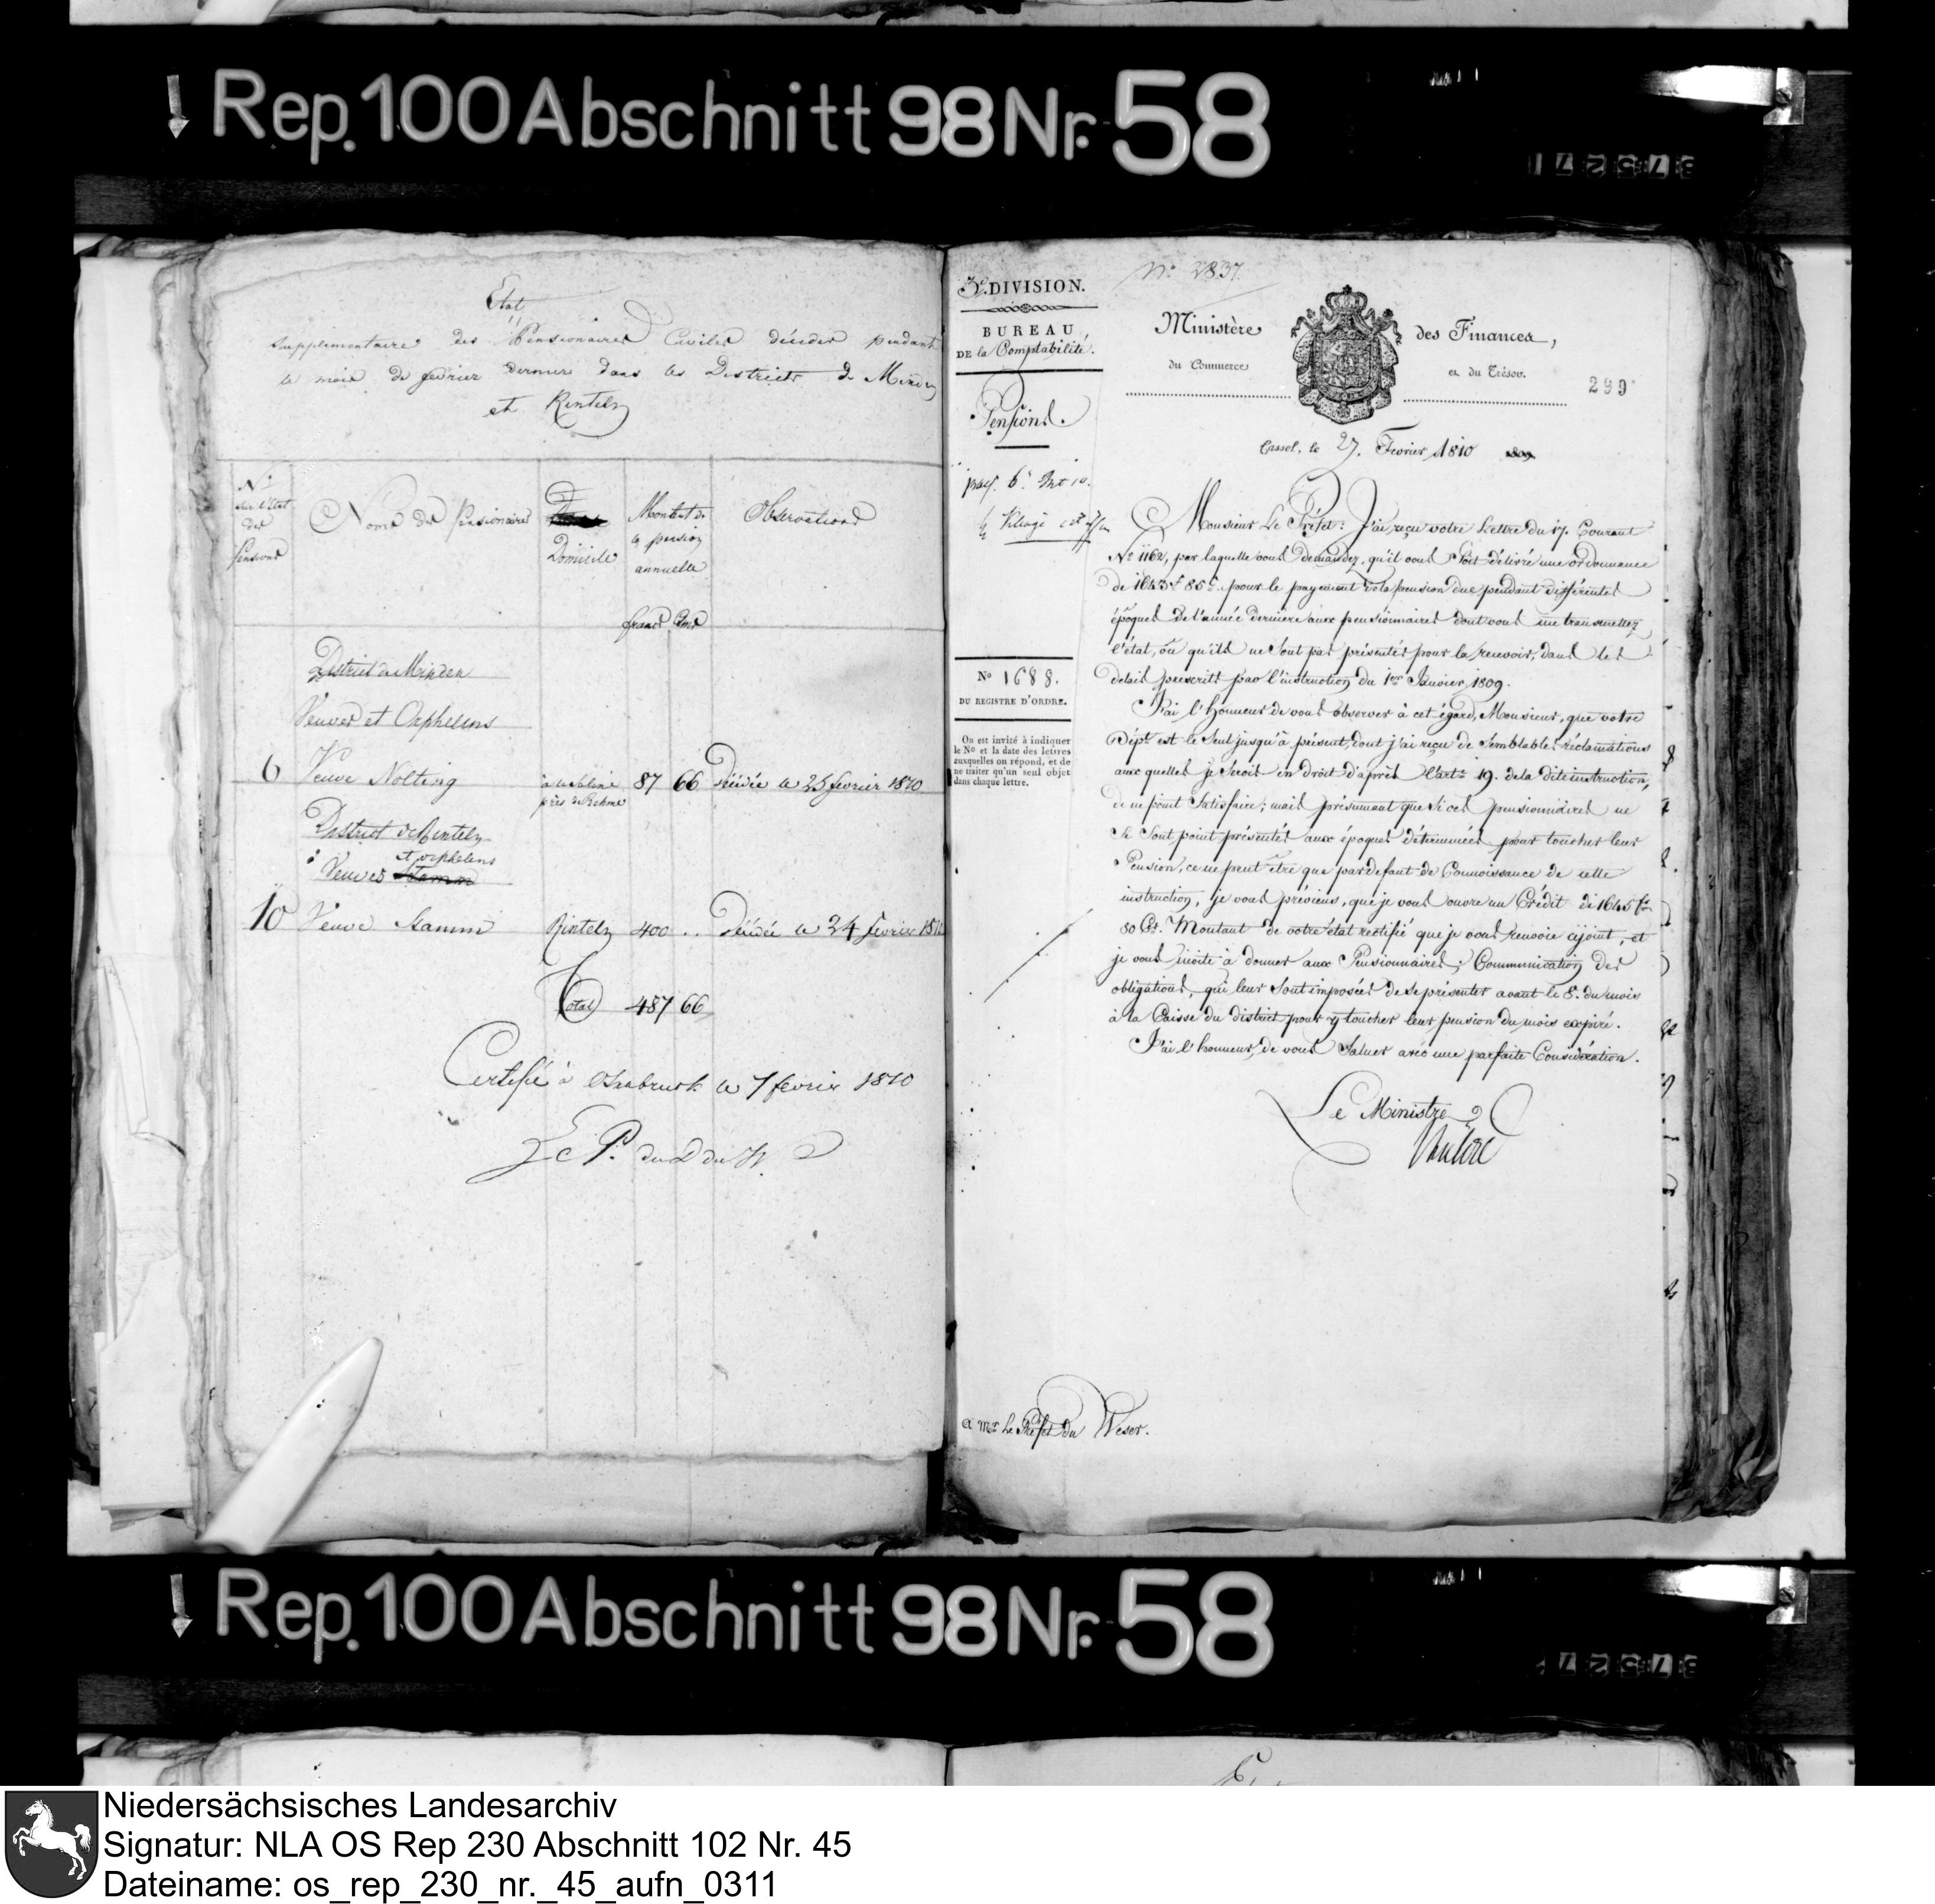 Rep. 100 Abschnitt 98 Nr. 58
Etat
supplementaire des Pensionaires Civiles décédés pendant
le mois de fevrier dernier dans les Districts de Minden
et Rinteln
No
sur l'Etat
des
Pensions
Noms des Pensionaires
Domicile
Montant de
la pension
annuelle
Observations
francs Cms
District de Minden
Veuves et Orphelins
6 Veuve Nolting à la Saline 87 66 Décédée le 25 fevrier 1810
près de Rehme
District de Rinteln
et orphelens
Veuves
10 Veuve Stamm Rinteln 400 .. Décédée le 24 fevrier 1810
Total 487 66
Certifié à Osnabruck le 7 fevrier 1810
Le P. du D du W.
3e. DIVISION.
BUREAU,
DE la Comptabilité.
Pensions.
No 1688.
DU REGISTRE D'ORDRE.
On est invité à indiquer
le No et la date des lettres
auxquelles on répond, et de
ne traiter qu'un seul objet
dans chaque lettre.
No 2837.
Ministère des Finances,
du Commerce et du Trésor.
299
Cassel, le 27. Fevrier 1810 1809
Monsieur Le Préfet: J'ai reçu votre Lettre du 17. Courant
No 1162, par laquelle vous demandez, qu'il vous soit délivré une ordonnance
de 1643 f 86 c. pour le payement de la pension due pendant différentes
époques de l'année derniere aux pensionnaires dont vous me transmettez
l'état, ou qu'ils ne sont pas présentés pour la recevoir, dans les
delais prescrits par l'instruction du 1er Janvier 1809.
J'ai l'honneur de vous observer à cet égard, Monsieur, que votre
Dépt est le seul jusqu'à présent, dont j'ai reçu de semblables réclamations
aux quelles je serois en droit d'après l'art: 19. de la dite instruction,
de ne point satisfaire; mais présumant que si ces pensionnaires ne
se sont point présentés aux époques déterminées pour toucher leur
Pension, ce ne peut être que par defaut de Connoissance de cette
instruction, je vous préviens, que je vous ouvre un Crédit de 1645 fr
80 Cs. Montant de votre état rectifié que je vous renvoie cijoint, et
je vous invite à donner aux Pensionnaires, Communication des
obligations, qui leur sont imposées de se présenter avant le 8. du mois
à la Caisse du district pour y toucher leur pension du mois expiré.
J'ai l'honneur de vous saluer avec une parfaite Considération.
Le Ministre
a Mr. Le Préfet du Weser.
Rep. 100 Abschnitt 98 Nr. 58
Niedersächsisches Landesarchiv
Signatur: NLA OS Rep 230 Abschnitt 102 Nr. 45
Dateiname: os_rep_230_nr._45_aufn_0311